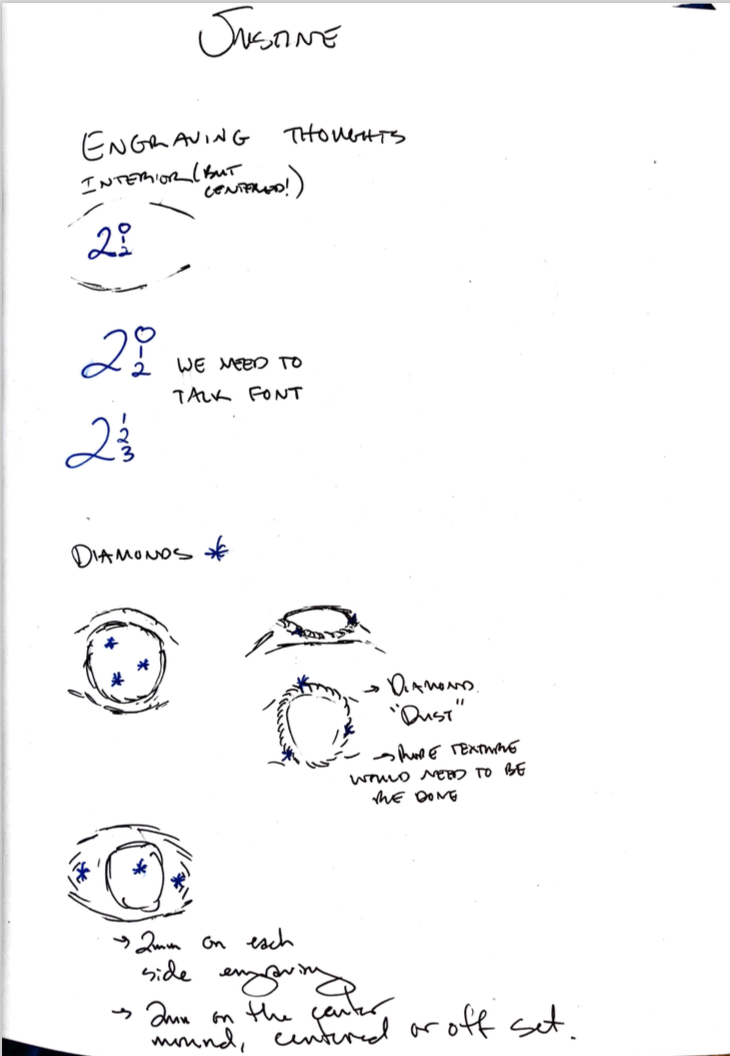 JUSTINE
ENGRAVING THOUGHTS
INTERIOR (BUT
CENTERED!)
2 0 1 2
2 0 1 2
WE NEED TO
TALK FONT
2 1 2 3
DIAMONDS *
→ DIAMOND
"DUST"
→ TEXTURE
WOULD NEED TO BE
RE DONE
→ 2mm on each
side engraving
→ 2mm on the center
mound, centered or off set.